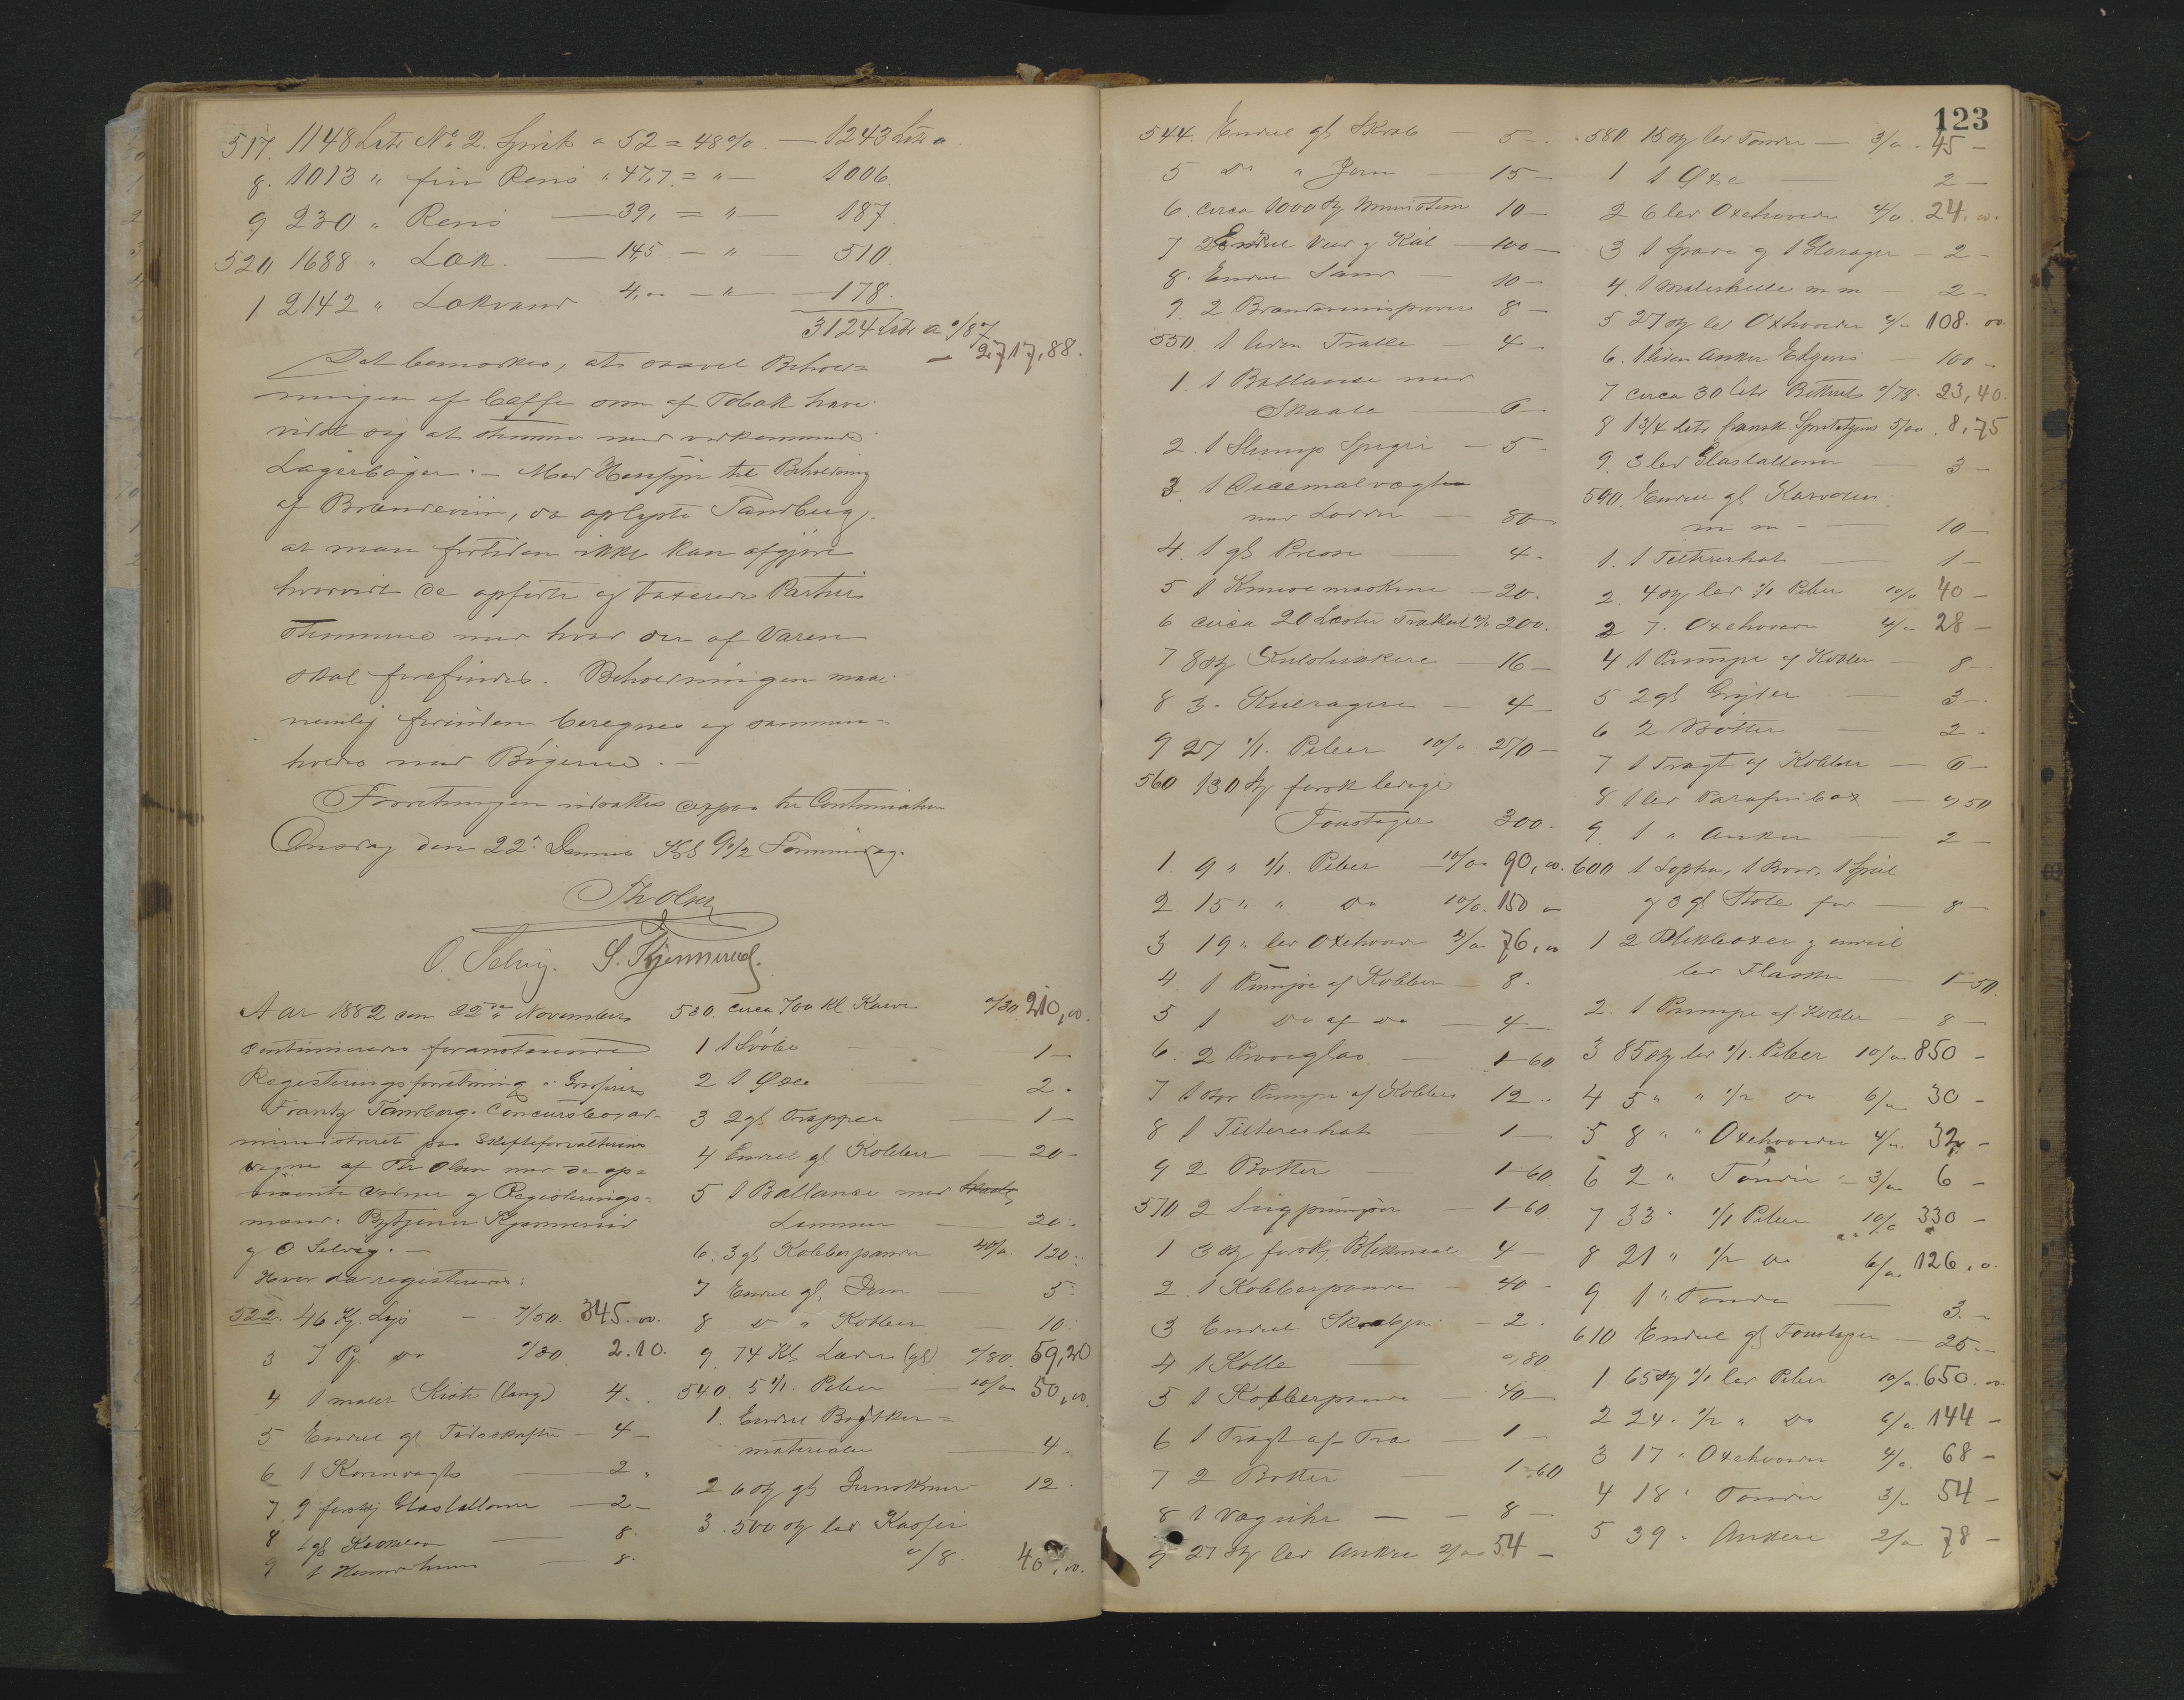 517. 1148 Lstr No 2. Sprit a 52 = 48% — 1243 Lstr a
8. 1013 " fin Rens " 47,7 = " — 1006
9 230 " Rens — 39, = " — 187
520 1688 " Lak. — 14,5 — " — 510
1 2142 " Lakvand 4,00 — " — 178.
3124 Lstr a 0/87
— 2717,88.
Det bemærkes, at saavel Behold=
ningen af Caffe som af Tobak have
vidst sig at stemme med vedkommende
Lagerbøger. — Med Hensyn til Beholdning
af Brændeviin, da oplyste Tandberg,
at man for tiden ikke kan afgjøre
hvorvidt de opførte og taxerede Partier
stemme med hvad der af Varen
skal forefindes. Beholdningen maa
nemlig forinden beregnes og sammen=
holdes med Bøgerne. —
Forretningen udsattes derpaa til Continuation
Onsdag den 22de Dennes Kl 9 1/2 Formiddag.
Th Olsen
O. Selvig. S. Kjennerud.
Aar 1882 den 22de November
continueredes foranstaaende
Registreringsforretning i Grosserer
Frantz Tandberg. Concursbo, ad-
ministreret paa Skifteforvalterens
vegne af Th Olsen med de op=
nævnte Vidner og Registrerings=
mænd: Bytjener Kjennerud
og O Selvig. —
Hvor da registreredes:
522. 46 Kg. Lys — 7/50. 345.00.
3 7 Pj. do 0/30 2.10.
4 1 malet Kiste (lang) 4.
5 Endeel gl — 4 —
6 1 Kornvægt — 2.
7 2 forskj Glasballoner — 2 —
8 1 gl — 8.
9 1 — 8.
530. circa 700 Kl Karve 0/30 210,00.
1 1 — 1 —
2 1 Øxe 2.
3 2 gl Trapper — 1 —
4 Endeel gl Kobber — 20 —
5 1 Ballance med Skaale
Lemmer — 20.
6. 3 gl Kobberpander 40/a. 120.
7 Endeel gl, — 5.
8 do " Kobber — 10.
9. 74 Kl Læder (gl) 0/80. 59,20
540 5 1/1. Piber — 10/00 50,00.
1. Endeel Bødker=
materialer — 4.
2 6 Stk gl — 12.
3. 500 Stk led Kasser
0/8. 40,00.
123
544. Endeel gl Skrab — 5 —
5 do " Jern — 15 —
6. circa 1000 Stk Muursteen 10 —
7 Endeel Veed & Kul — 100 —
8. Endeel Sand — 10 —
9. 2 Brændeviinsprøvere 8 —
550 1 liden Tralle — 4 —
1. 1 Ballance med
Skaale — 6 —
2. 1 Slump Spiger — 5 —
3. 1 Decimalvægt
med Lodder — 80 —
4. 1 gl Presse — 4 —
5 1 Knuse maskine — 20.
6 circa 20 Læster Trækul 10/a 200.
7 8 Stk — 16 —
8 3. Kulragere — 4 —
9 27 1/1. Piber 10/a 270 —
560 130 Stk forsk ledige
Foustager 300.
1. 9 " 1/1. Piber — 10/00 90,00.
2 15 " " do 10/a. 150 —
3 19 " led Oxehoveder 4/a 76,00
4. 1 Pumpe af Kobber — 8.
5 1 do af do — 4 —
6. 2 Prøveglas — 1-60
7 1 stor Pumpe af Kobber 12..
8 1 — 1 —
9 2 Bøtter — 1-60
570 2 Sugpumper — 1-60
1 3 Stk forskj, Blikmaal 4 —
2. 1 Kobberpande — 40 —
3 Endeel — 2.
4 1 Kolle 0,80
5 1 Kobberpande — 40 —
6 1 Tragt af Træ — 1 —
7 2 Bøtter — 1-60
8 1 Væguhr — — 8 —
9 27 Stk led Ankre 2/00 54 —
580 15 Stk led Tønder — 3/a. 45 —
1 1 Øxe — 2 —
2 6 led Oxehoveder 4/a. 24,00.
3 1 Spade & 1 — 2 —
4. 1 m m — 2 —
5 27 Stk led Oxhoveder 4/a 108.00.
6. 1 liden Anker — 100 —
7 circa 30 Litr 0/78. 23,40.
8 1 3/4 Litr fransk. 5/00. 8,75
9. 3 led Glasballoner — 3 —
590. Endeel gl
m m — 10 —
1. 1 — 1 —
2. 4 Stk led 1/1 Piber 10/a 40 —
3 7. Oxehoveder 4/a 28 —
4 1 Pumpe af Kobber — 8 —
5 2 gl Gryder — 3 —
6 2 Bøtter — 2.
7 1 Tragt af Kobber — 6 —
8 1 led Parafinbox — 0,50
9. 1 " Anker — 2 —
600 1 Sopha, 1 Bord, 1 Speil
& 3 gl Stole for — 8 —
1 2 Blikboxer & endeel
led Flasker — 1-50.
2. 1 Pumpe af Kobber — 8 —
3 85 Stk led 1/1. Piber 10/00 850 —
4 5 " " 1/2 do 6/00 30 —
5 8 " " Oxehoveder 4/00. 32 —
6 2 " Tønder — 3/00 6 —
7 33 " 1/1 Piber 10/00 330 —
8 21 " 1/2 do 6/00 126,0.
9 1 " Tønde — 3. —
610 Endeel gl Foustager — 25. —
1 65 Stk 1/1 led Piber 10/a. 650.00.
2 24. 1/2 " do 6/a 144 —
3 17 " Oxehoveder 4/a. 68 —
4 18 " Tønder 3/a 54 —
5 39 " Ankere 2/a 78 —